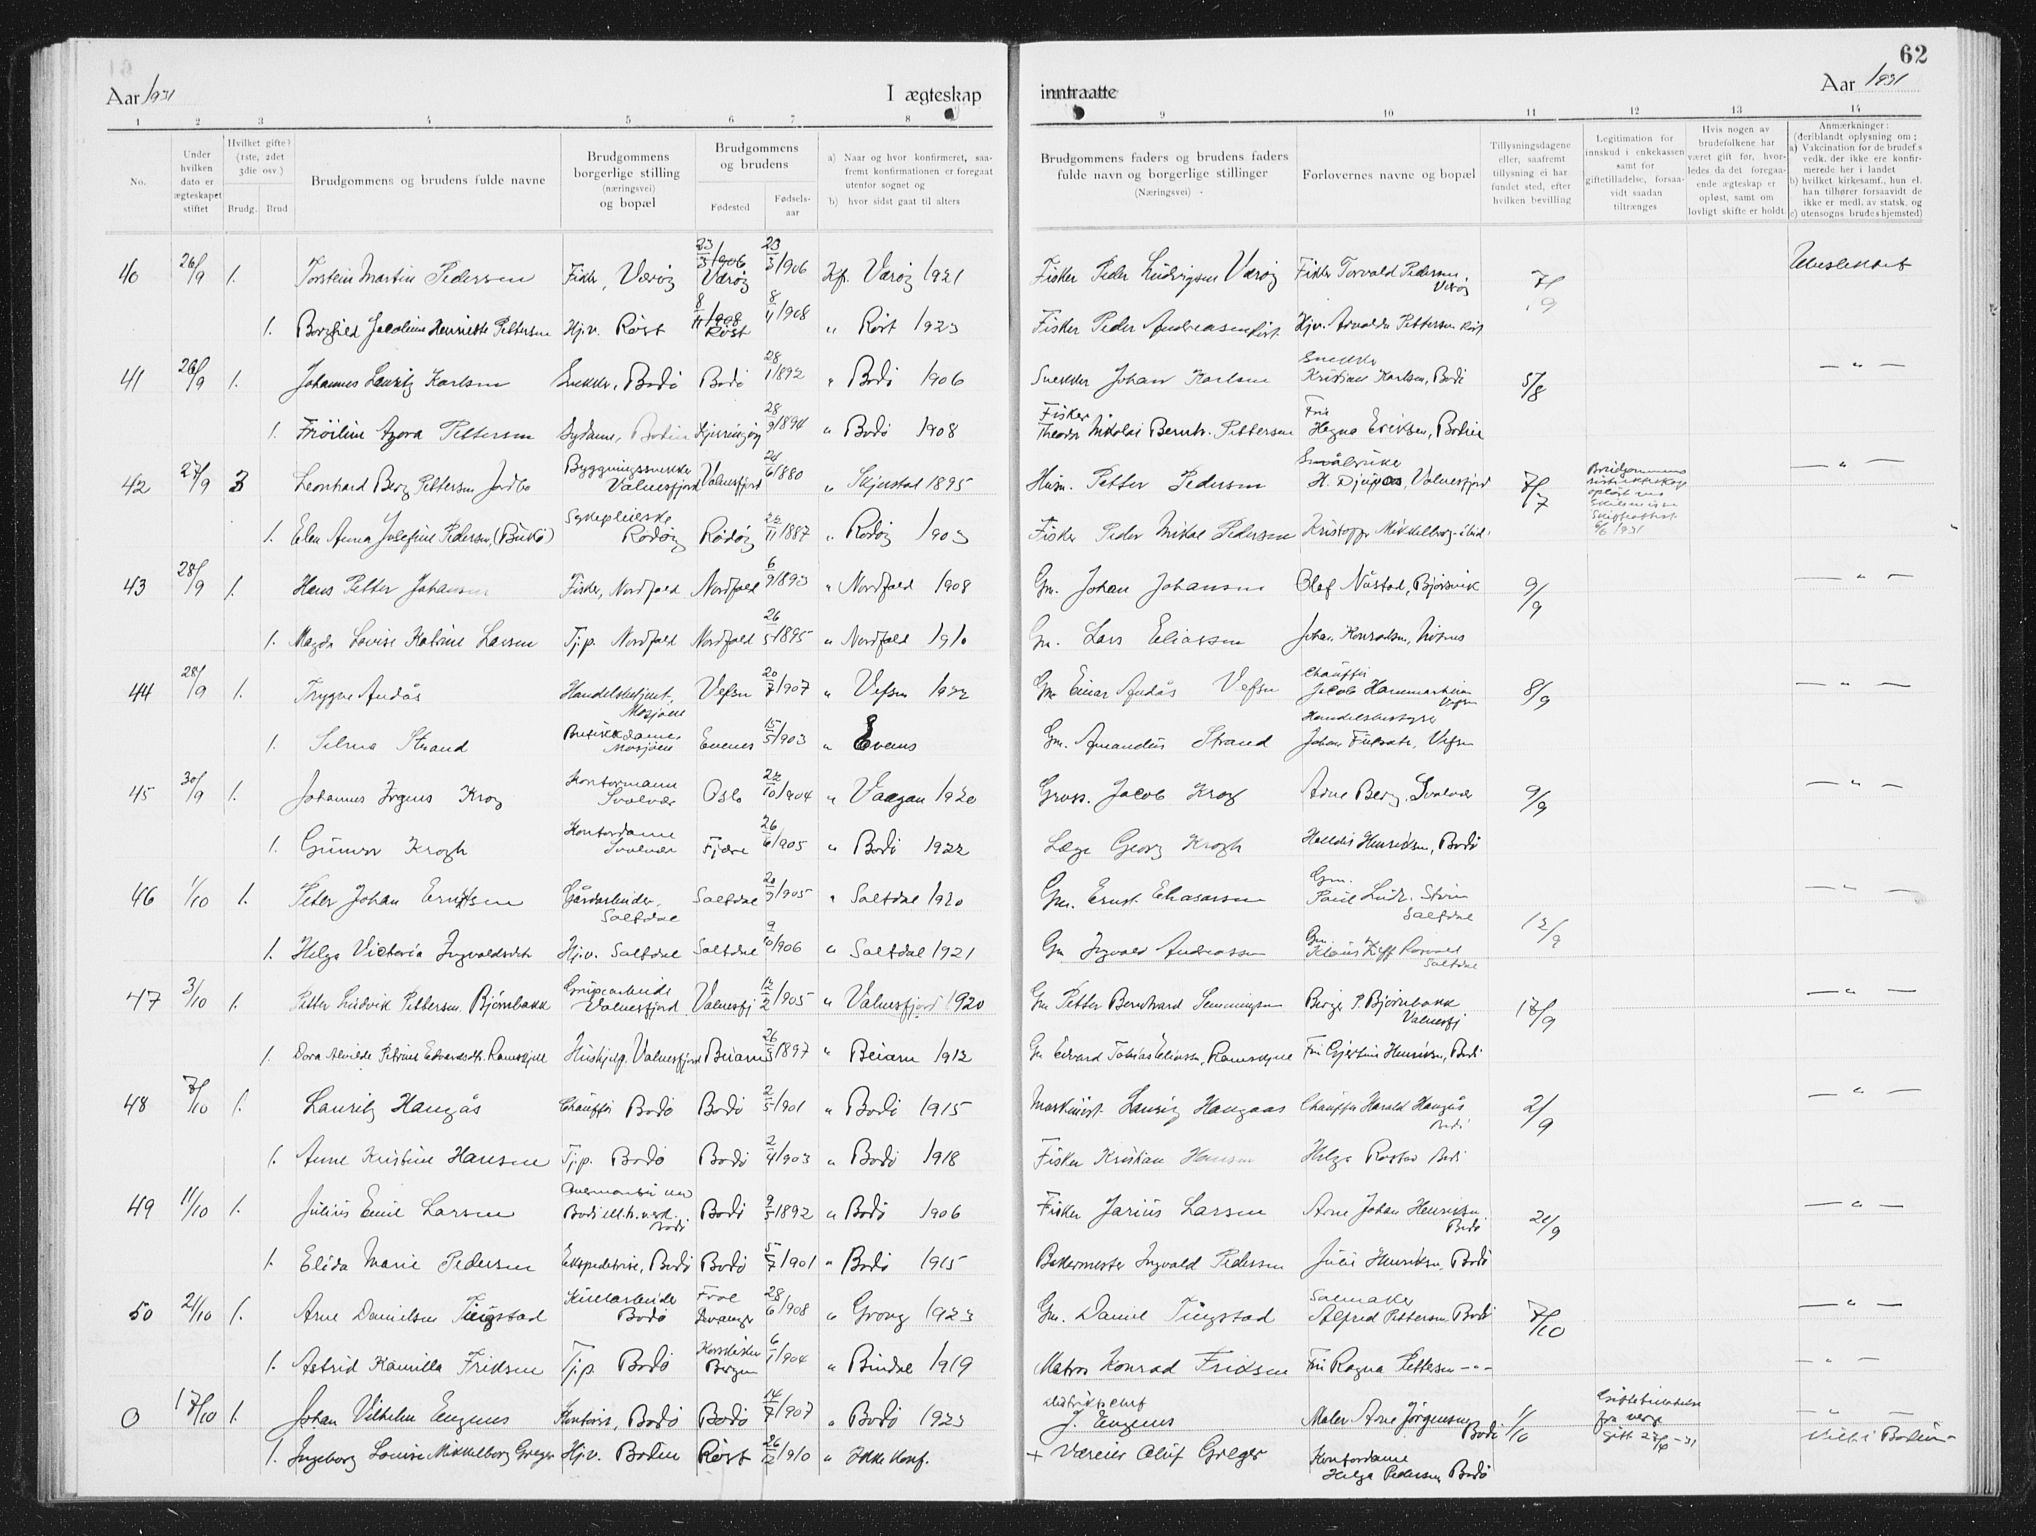 62
Aar 1931
I ægteskap
inntraatte
Aar 1931
1 2 3 4 5 6 7 8
9 10 11 12 13 14
No.
Under hvilken dato er ægteskapet stiftet
Hvilket gifte? (1ste, 2det 3die osv.)
Brudg. Brud
Brudgommens og brudens fulde navne
Brudgommens borgerlige stilling (næringsvei) og bopæl
Brudgommens og brudens
Fødested
Fødsels-aar
a) Naar og hvor konfirmeret, saafremt konfirmationen er foregaat utenfor sognet og
b) hvor sidst gaat til alters
Brudgommens faders og brudens faders fulde navn og borgerlige stillinger (Næringsvei)
Forlovernes navne og bopæl
Tillysningsdagene eller, saafremt tillysning ei har fundet sted, efter hvilken bevilling
Legitimation for innskud i enkekassen samt for giftetilladelse, forsaavidt saadan tiltrænges
Hvis nogen av brudefolkene har været gift før, hvorledes da det foregaaende ægteskap er opløst, samt om lovligt skifte er holdt
Anmærkninger: (deriblandt oplysning om:
a) Vakcination for de brudef s vedk. der ikke ere konfirmerede her i landet
b) hvilket kirkesamf., hun el. han tilhører forsaavidt de ikke er medl. av statsk. og
c) utensogns brudes hjemsted)
40 26/9 1. Torstein Martin Pedersen Fisker, Værøy 23/3 1906 Værøy 23/3 1906 Kf. Værøy 1921 Fisker Peder Ludvigsen Værøy Fisker Torvald Pedersen Værøy 7/9 Ubeslektet
1. Borghild Jacoline Henriette Pettersen Hjv. Røst 8/11 1908 Røst 8/11 1908 " Røst 1923 Fisker Peder Andreassen Røst Hjv. Arnalda Pettersen Røst
41 26/9 1. Johannes Lauritz Karlsen Snekker, Bodø Bodø 28/1 1892 " Bodø 1906 Snekker Johan Karlsen Snekker Kristian Karlsen, Bodø 5/8 — " —
1. Frøiline Azora Pettersen Sydame, Bodin Kjerringøy 28/9 1894 " Bodø 1908 Fisker Theodor Nikolai Bernh. Pettersen Fru Hegna Eriksen, Bodin
42 27/9 3 Leonhard Berg Pettersen Jordbo Bygningssnekker Valnesfjord Valnesfjord 24/6 1880 " Skjerstad 1895 Husm. Petter Pedersen Småbruker H. Djupos, Valnesfjord 7/7 Brudgommens — " —
6/6 1931
1. Elen Anna Josefine Pedersen Sykepleierske Rødøy Rødøy 22/11 1887 " Rødøy 1903 Fisker Peder Mikal Pedersen Kristoffer Mikkelborg
43 28/9 1. Hans Petter Johansen Fisker, Nordfold Nordfold 6/9 1893 " Nordfold 1908 Gm. Johan Johansen Olaf Nustad, Bjørsvik 9/9 — " —
1. Magda Lovise Katrine Larsen Tj.p. Nordfold Nordfold 26/5 1895 " Nordfold 1910 Gm. Lars Eliassen Johan Konradsen,
44 28/9 1. Trygve Andås Handelsbetjent, Mosjøen Vefsn 20/7 1907 " Vefsn 1922 Gm. Einar Andås Vefsn Chauffør Jacob Hammarheim Vefsn 8/9 — " —
1. Selma Strand Butikkdame Mosjøen Evenes 15/5 1903 " Evenes Gm. Amandus Strand Handelsbestyrer Johan Vefsn
45 30/9 1. Johannes Krog Kontormann Svolvær Oslo 22/10 1904 " Vaagan 1920 Jacob Krog Arne Berg, Svolvær 9/9 — " —
1. Gunvor Krogh Kontordame Svolvær Fjære 26/6 1905 " Bodø 1922 Læge Georg Krogh Halldis Henriksen, Bodø
46 1/10 1. Peter Johan Ernstsen Gårdarbeider, Saltdal Saltdal 20/9 1905 " Saltdal 1920 Gm. Ernst Eliasarsen Gm. Paul Ludv. Saltdal 12/9 — " —
1. Helga Victoria Ingvaldsdtr Hjv. Saltdal Saltdal 9/10 1906 " Saltdal 1921 Gm Ingvald Andreassen Gm. Klaus Saltdal
47 3/10 1. Petter Ludvik Pettersen Bjørnbakk Grubearbeider Valnesfjord Valnesfj 12/2 1905 " Valnesfjord 1920 Gm Petter Bernhard Semmingsen Birger P. Bjørnbakk Valnesfj 18/9 — " —
1. Dora Alvilde Petrine Edvardsdtr. Ramskjell Hushjelp. Valnesfjord Beiarn 26/5 1897 " Beiarn 1912 Gm Edvard Tobias Eliassen, Ramskjell Fru Gjertine Henriksen, Bodø
48 7/10 1. Lauritz Haugås Chauffør Bodø Bodø 2/5 1901 " Bodø 1915 Maskinist Lauritz Haugaas Chauffør Harald Haugås Bodø 2/9 — " —
1. Anne Kristine Hansen Tj.p. Bodø Bodø 2/4 1903 " Bodø 1918 Fisker Kristian Hansen Helga Bodø
49 11/10 1. Julius Emil Larsen Bodø Bodø 9/5 1892 " Bodø 1906 Fisker Jarius Larsen Arne Johan Henriksen Bodø 21/9 — " —
1. Elida Marie Pedersen Ekspeditrise, Bodø Bodø 5/7 1901 " Bodø 1915 Bakermester Ingvald Pedersen Julie Henriksen, Bodø
50 21/10 1. Arne Danielsen Tingstad Bodø 28/6 1908 " Grong 1923 Gm. Daniel Tingstad Salmaker Alfred Pettersen Bodø 7/10 — " —
1. Astrid Kamilla Fridsen Tj.p. Bodø Bergen 6/1 1904 " Bindal 1919 Matros Konrad Fridsen Fru Ragna Pettersen – " –
0 17/10 1. Johan Vilhelm Eugenes Kontorist, Bodø Bodø 14/7 1907 " Bodø 1923 J. Eugenes Maler Arne Jørgensen Bodø 1/10 fra verge — " —
1. Ingeborg Louise Mikkelborg Greger Hjv. Bodin Røst 26/12 1910 " Ikke konf. + Væreier Oluf Greger Kontordame Helga Pedersen, Bodø Viet i Bodin